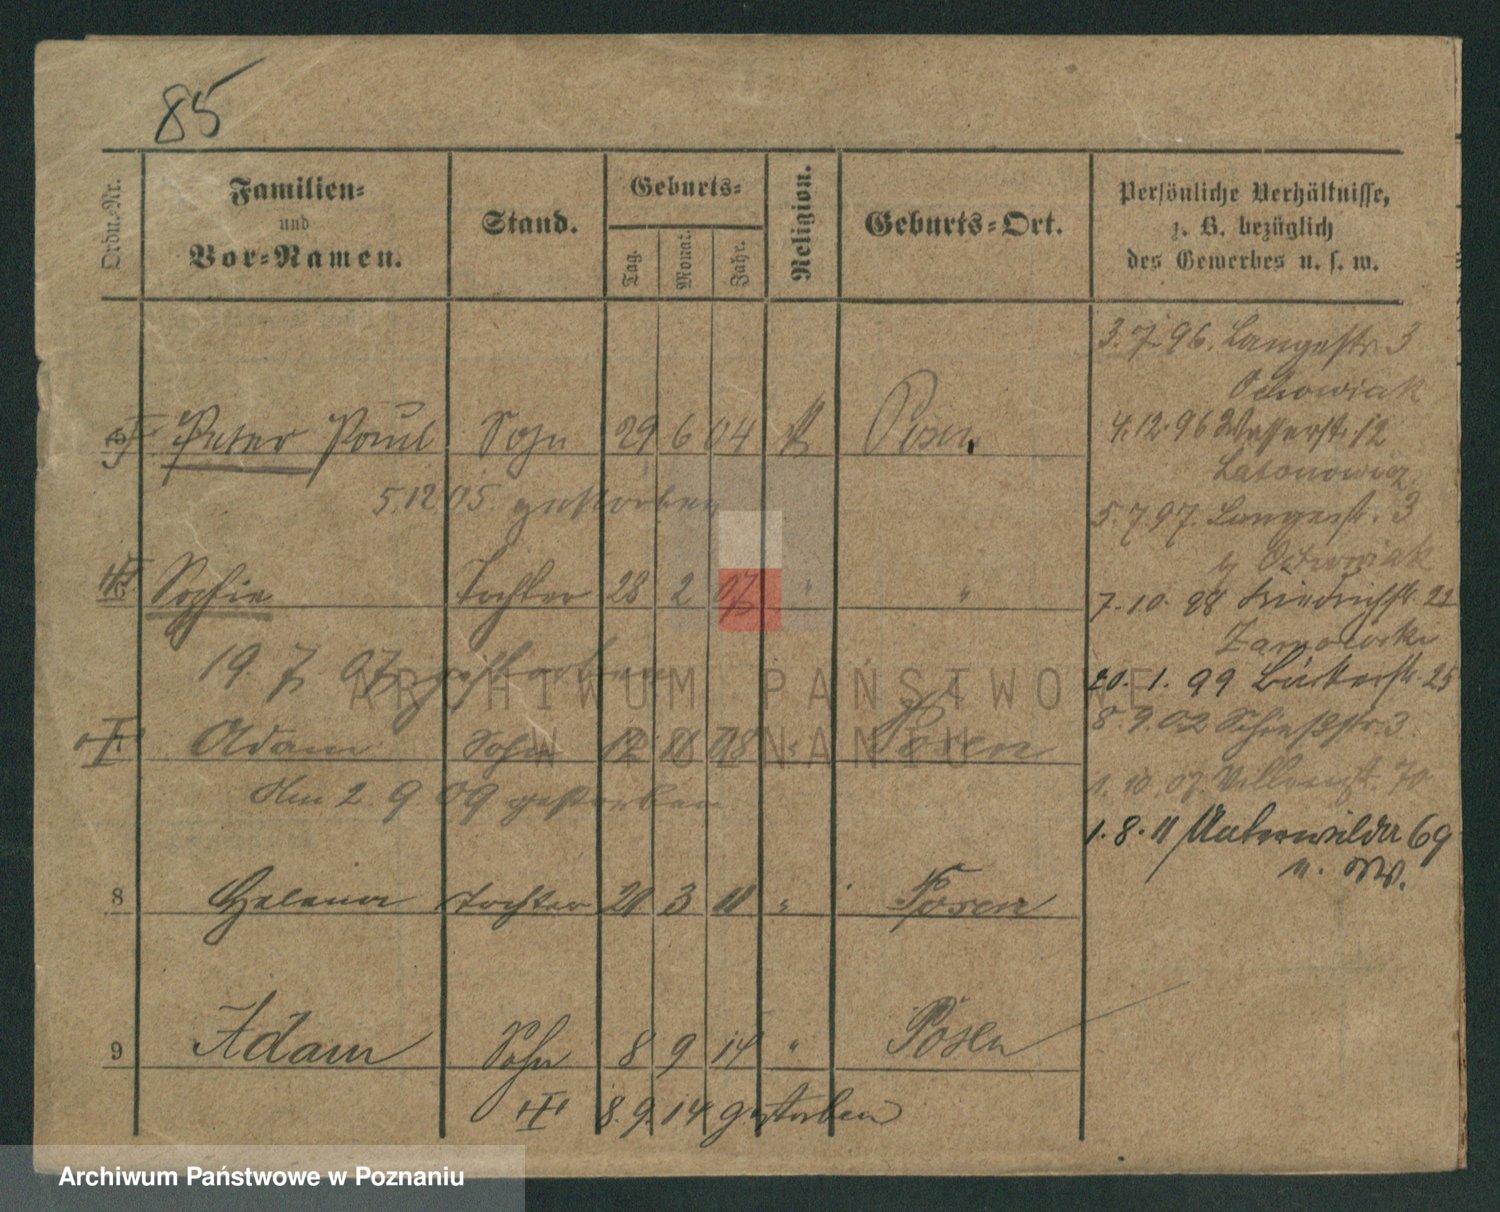 85
Ordn.-Nr.
Familien-
und
Vor-Namen.
Stand.
Geburts-
Tag.
Monat.
Jahr.
Religion.
Geburts-Ort.
Persönliche Verhältnisse,
z. B. bezüglich
des Gewerbes u. s. w.
3.7.96. Langestr. 3
4.12.96 Wasserstr. 12
5.7.97. Langestr. 3
7.10.98 Friedrichstr. 22
Peter Paul Sohn 29 6 04 Posen
5.12.05. gestorben
Sophie Tochter 28 2 07 " "
19. 7. 07 gestorben
20. 1. 99 Bäckerstr. 25
8.9.02 Schießstr. 3.
Adam Sohn 12 11 08 " Posen
Am 2. 9 09 gestorben
1.10.07
1.8.11 Unterwilda 69
8 Helena Tochter 20 3 11 " Posen
9 Adam Sohn 8 9 14 " Posen
8. 9. 14 gestorben
ARCHIWUM PAŃSTWOWE
W POZNANIU
Archiwum Państwowe w Poznaniu